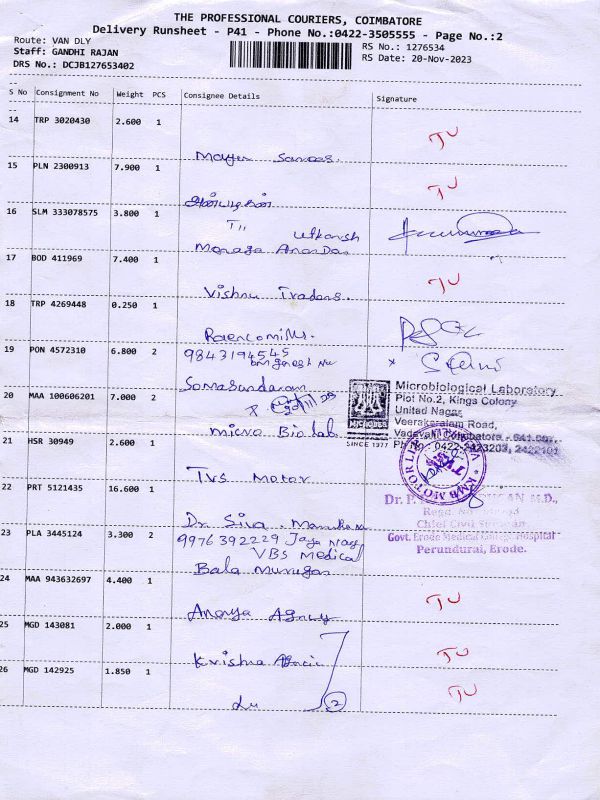 THE PROFESSIONAL COURIERS, COIMBATORE
Delivery Runsheet - P41 - Phone No.:0422-3505555 - Page No.:2
Route: VAN DLY
RS No.: 1276534
Staff: GANDHI RAJAN
RS Date: 20-Nov-2023
DRS No.: DCJB127653402
S No Consignment No Weight PCS Consignee Details Signature
14 TRP 3020430 2.600 1
TU
15 PLN 2300913 7.900 1
TU
16 SLM 333078575 3.800 1
Utkarsh
17 BOD 411969 7.400 1
TU
Vishnu Traders.
18 TRP 4269448 0.250 1
19 PON 4572310 6.800 2
9843194545
Somasundaram
20 MAA 100606201 7.000 2
Microbiological Laboratory
Plot No.2, Kings Colony
United Nagar,
Veerakeralam Road,
Vadavalli Coimbatore - 641 007.
Ph No. 0422-2423203, 2422101
SINCE 1977
micro Bio lab
21 HSR 30949 2.600 1
TVS Motor
22 PRT 5121435 16.600 1
Chief Civil Surgeon
Govt. Erode Medical College Hospital
Perundurai, Erode.
23 PLA 3445124 3.300 2
Dr Siva
9976392229 Jaya
VBS Medical
Bala Murugan
24 MAA 943632697 4.400 1
TU
Ananya Agncy
25 MGD 143081 2.000 1
TU
Krishna
26 MGD 142925 1.850 1
TU
du 2